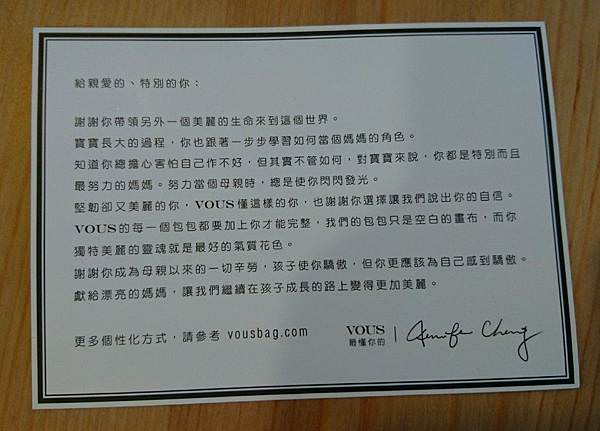 給親愛的、特別的你：
謝謝你帶領另外一個美麗的生命來到這個世界。
寶寶長大的過程，你也跟著一步步學習如何當個媽媽的角色。
知道你總擔心害怕自己作不好，但其實不管如何，對寶寶來說，你都是特別而且
最努力的媽媽。努力當個母親時，總是使你閃閃發光。
堅韌卻又美麗的你，VOUS懂這樣的你，也謝謝你選擇讓我們說出你的自信。
VOUS的每一個包包都要加上你才能完整，我們的包包只是空白的畫布，而你
獨特美麗的靈魂就是最好的氣質花色。
謝謝你成為母親以來的一切辛勞，孩子使你驕傲，但你更應該為自己感到驕傲。
獻給漂亮的媽媽，讓我們繼續在孩子成長的路上變得更加美麗。
更多個性化方式，請參考 vousbag.com
VOUS
最懂你的
Jennifer Cheng